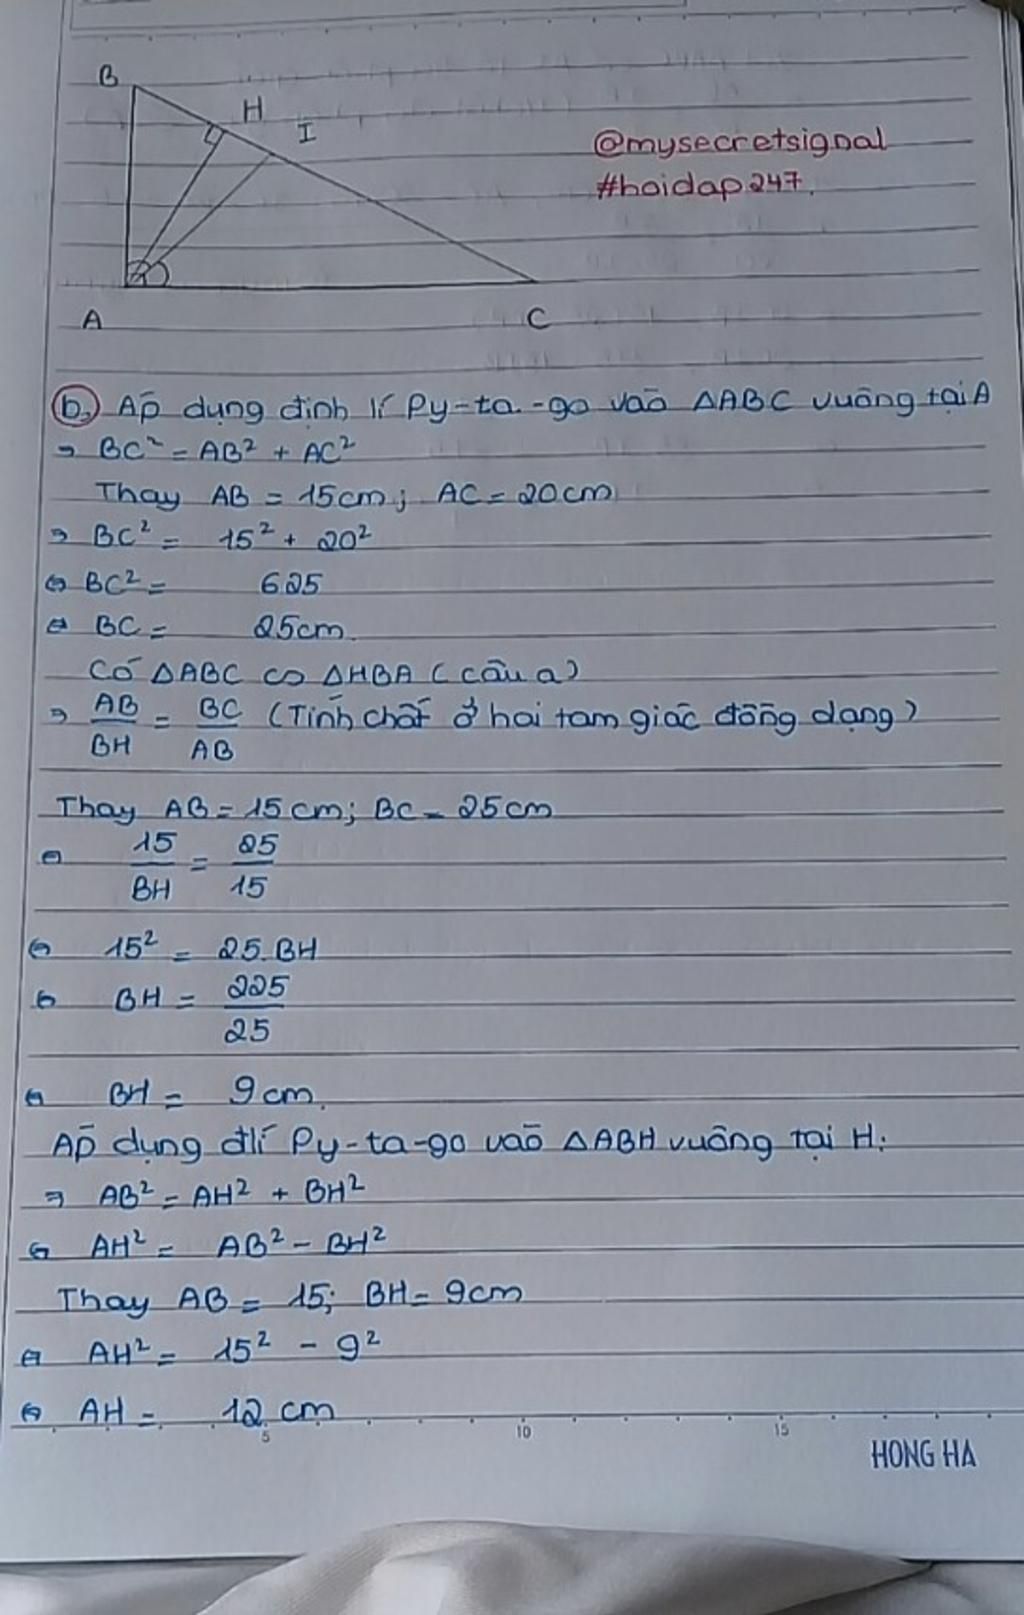 B
H
I
@mysecretsignal
#hoidap247.
A
C
b, Áp dụng định lí Py-ta-go vào ΔABC vuông tại A
⇒ BC² = AB² + AC²
Thay AB = 15cm; AC = 20cm
⇒ BC² = 15² + 20²
⇔ BC² = 625
⇔ BC = 25cm.
Có ΔABC ∽ ΔHBA (câu a)
⇒ AB/BH = BC/AB (Tính chất ở hai tam giác đồng dạng)
Thay AB = 15cm; BC = 25cm
⇔ 15/BH = 25/15
⇔ 15² = 25.BH
⇔ BH = 225/25
⇔ BH = 9cm.
Áp dụng đlí Py-ta-go vào ΔABH vuông tại H:
⇒ AB² = AH² + BH²
⇔ AH² = AB² - BH²
Thay AB = 15; BH = 9cm
⇔ AH² = 15² - 9²
⇔ AH = 12 cm
5 10 15
HONG HA